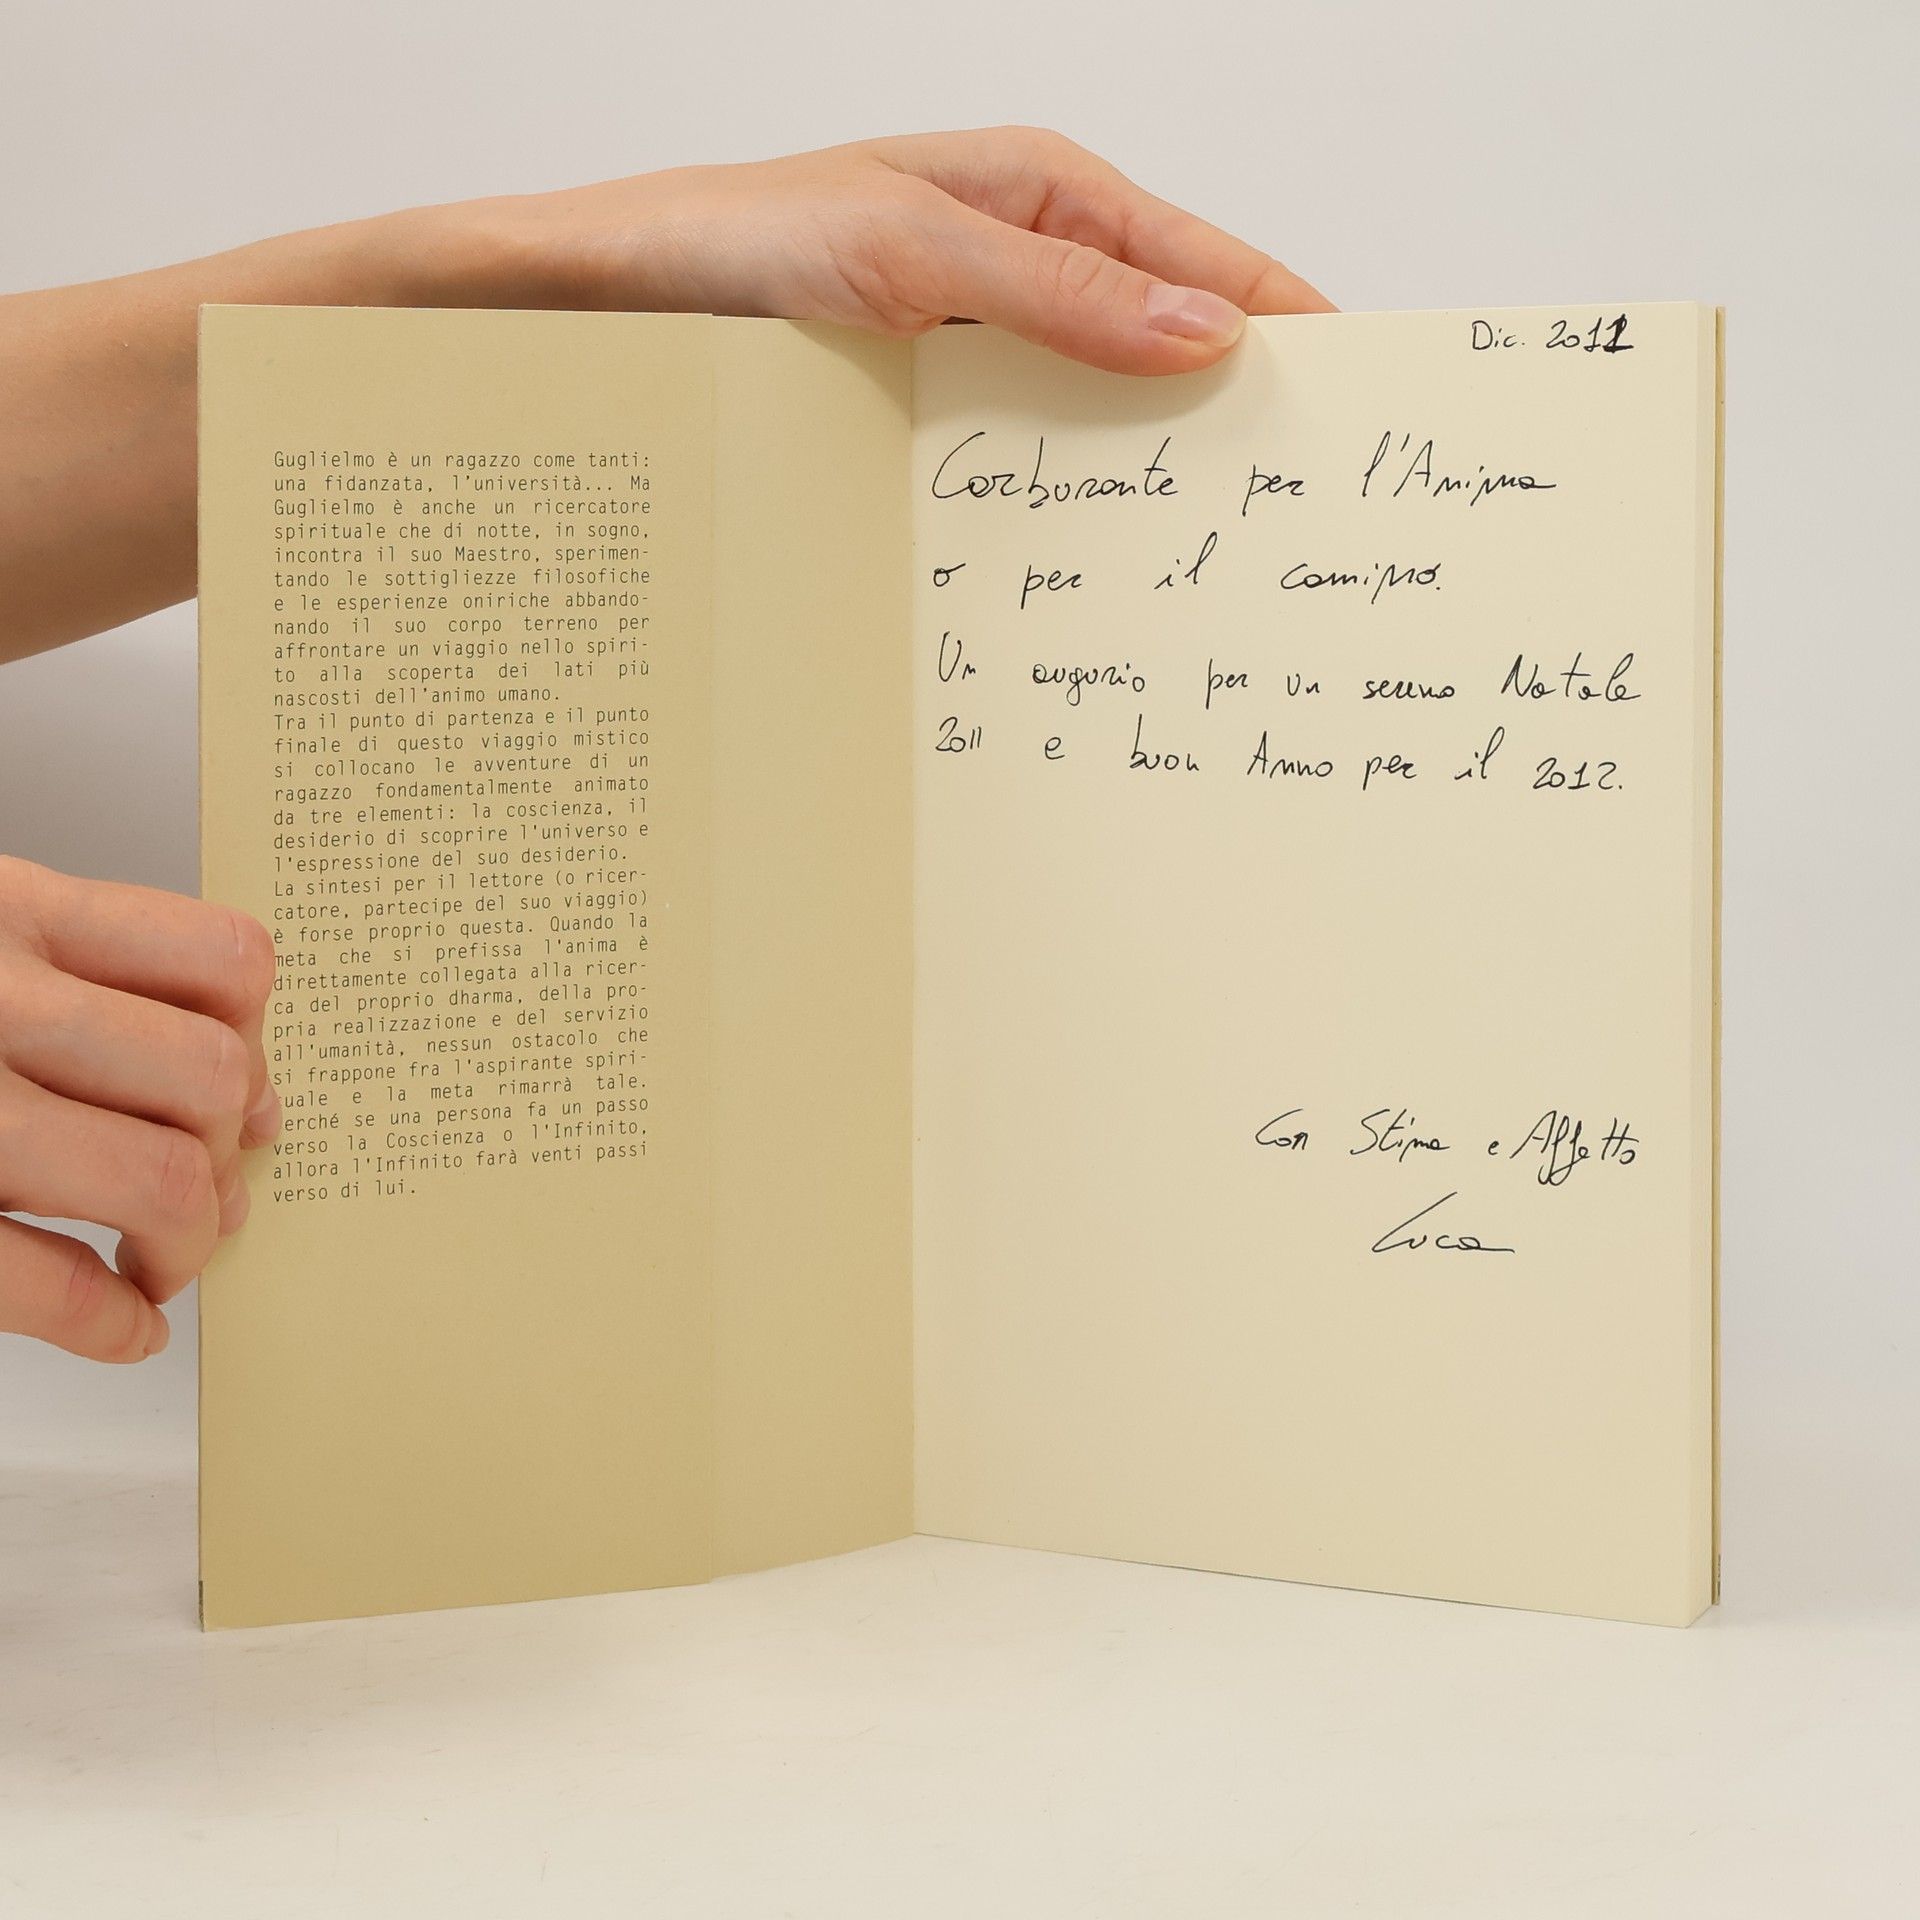 Guglielmo è un ragazzo come tanti:
una fidanzata, l'università... Ma
Guglielmo è anche un ricercatore
spirituale che di notte, in sogno,
incontra il suo Maestro, sperimen-
tando le sottigliezze filosofiche
e le esperienze oniriche abbando-
nando il suo corpo terreno per
affrontare un viaggio nello spiri-
to alla scoperta dei lati più
nascosti dell'animo umano.
Tra il punto di partenza e il punto
finale di questo viaggio mistico
si collocano le avventure di un
ragazzo fondamentalmente animato
da tre elementi: la coscienza, il
desiderio di scoprire l'universo e
l'espressione del suo desiderio.
La sintesi per il lettore (o ricer-
catore, partecipe del suo viaggio)
è forse proprio questa. Quando la
meta che si prefissa l'anima è
direttamente collegata alla ricer-
ca del proprio dharma, della pro-
pria realizzazione e del servizio
all'umanità, nessun ostacolo che
si frappone fra l'aspirante spiri-
tuale e la meta rimarrà tale.
Perché se una persona fa un passo
verso la Coscienza o l'Infinito,
allora l'Infinito farà venti passi
verso di lui.
Dic. 2011
Carburante per l'Anima
o per il camino.
Un augurio per un sereno Natale
2011 e buon Anno per il 2012.
Con Stima e Affetto
Luca